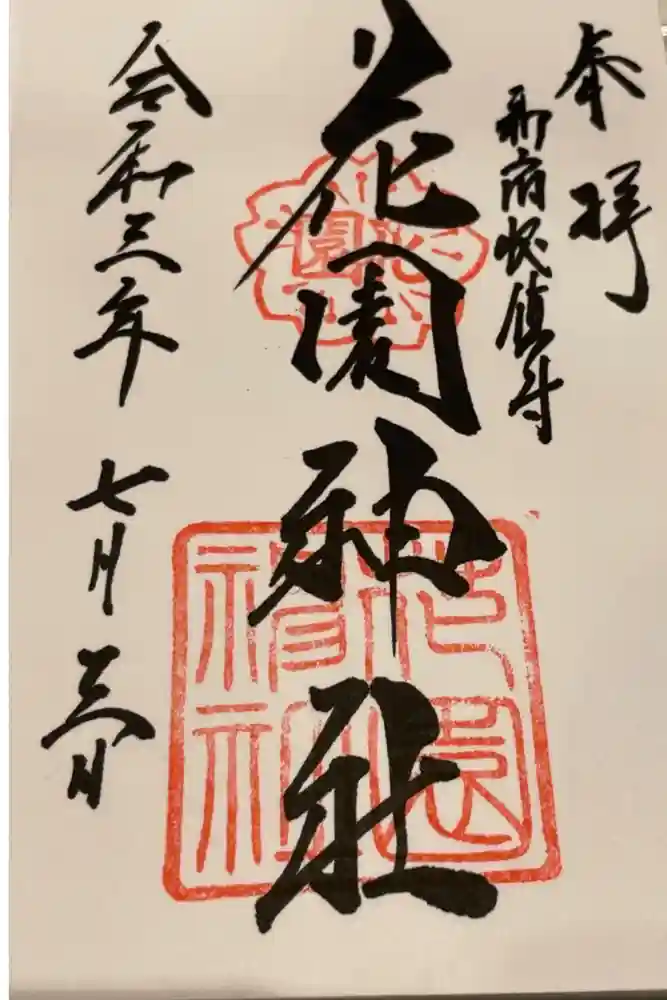 奉拝
新宿総鎮守
花園神社
花園
花園神社
令和三年 七月 三日